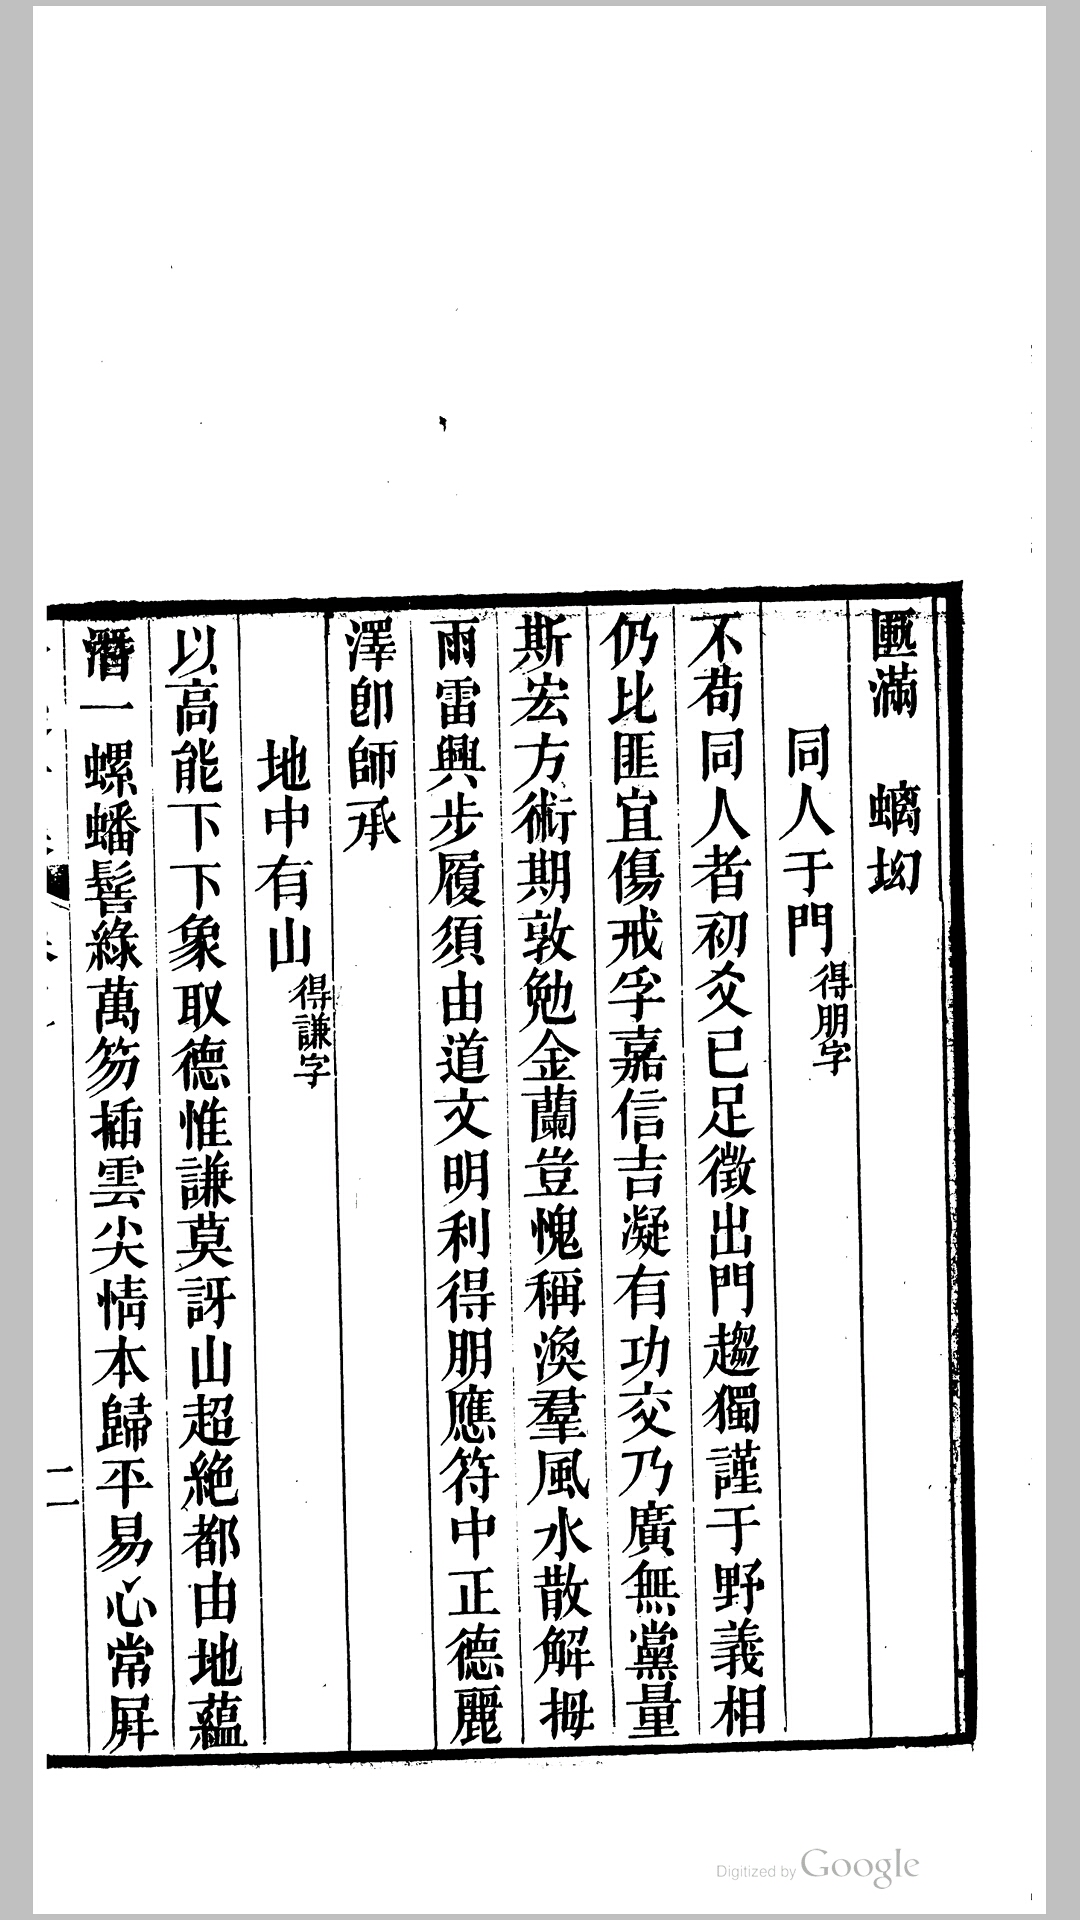 匭滿　螭坳
同人于門得朋字
不苟同人者初爻已足徵出門趨獨謹于野義相
仍比匪宜傷戒孚嘉信吉凝有功交乃廣無黨量
斯宏方術期敦勉金蘭豈愧稱渙羣風水散解拇
雨雷興步履須由道文明利得朋應符中正德麗
澤卽師承
地中有山得謙字
以高能下下象取德惟謙莫訝山超絶都由地蘊
潛一螺蟠髻綠萬笏插雲尖情本歸平易心常屛
二
Digitized by Google